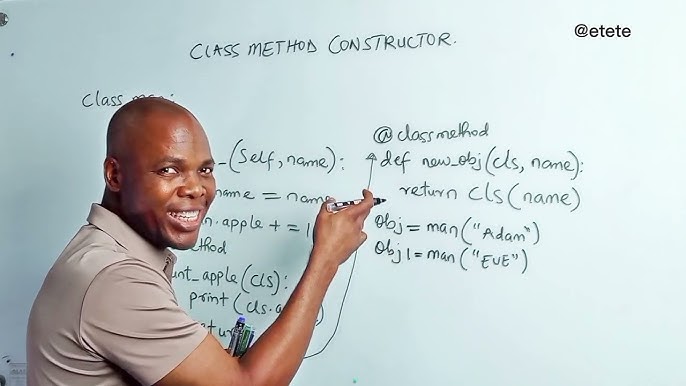 @etete
CLASS METHOD CONSTRUCTOR.
class
(self, name):
name = name
.apple + = 1
unt_apple(cls):
print(cls.a
@classmethod
def new_obj(cls, name):
return cls(name)
obj = man("Adam")
obj1 = man("EVE")